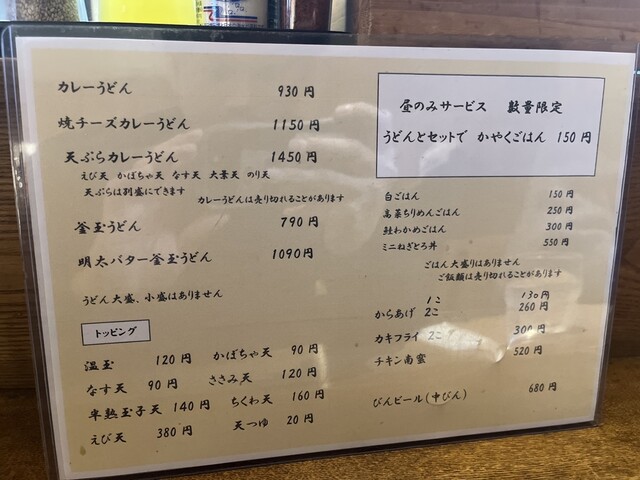 カレーうどん 930円
焼チーズカレーうどん 1150円
天ぷらカレーうどん 1450円
えび天 かぼちゃ天 なす天 大葉天 のり天
天ぷらは別盛にできます
カレーうどんは売り切れることがあります
釜玉うどん 790円
明太バター釜玉うどん 1090円
うどん大盛、小盛はありません
トッピング
温玉 120円 かぼちゃ天 90円
なす天 90円 ささみ天 120円
半熟玉子天 140円 ちくわ天 160円
えび天 380円 天つゆ 20円
昼のみサービス 数量限定
うどんとセットで かやくごはん 150円
白ごはん 150円
高菜ちりめんごはん 250円
鮭わかめごはん 300円
ミニねぎとろ丼 550円
ごはん大盛りはありません
ご飯類は売り切れることがあります
1こ 130円
からあげ 2こ 260円
カキフライ 2こ 300円
チキン南蛮 520円
びんビール(中びん) 680円